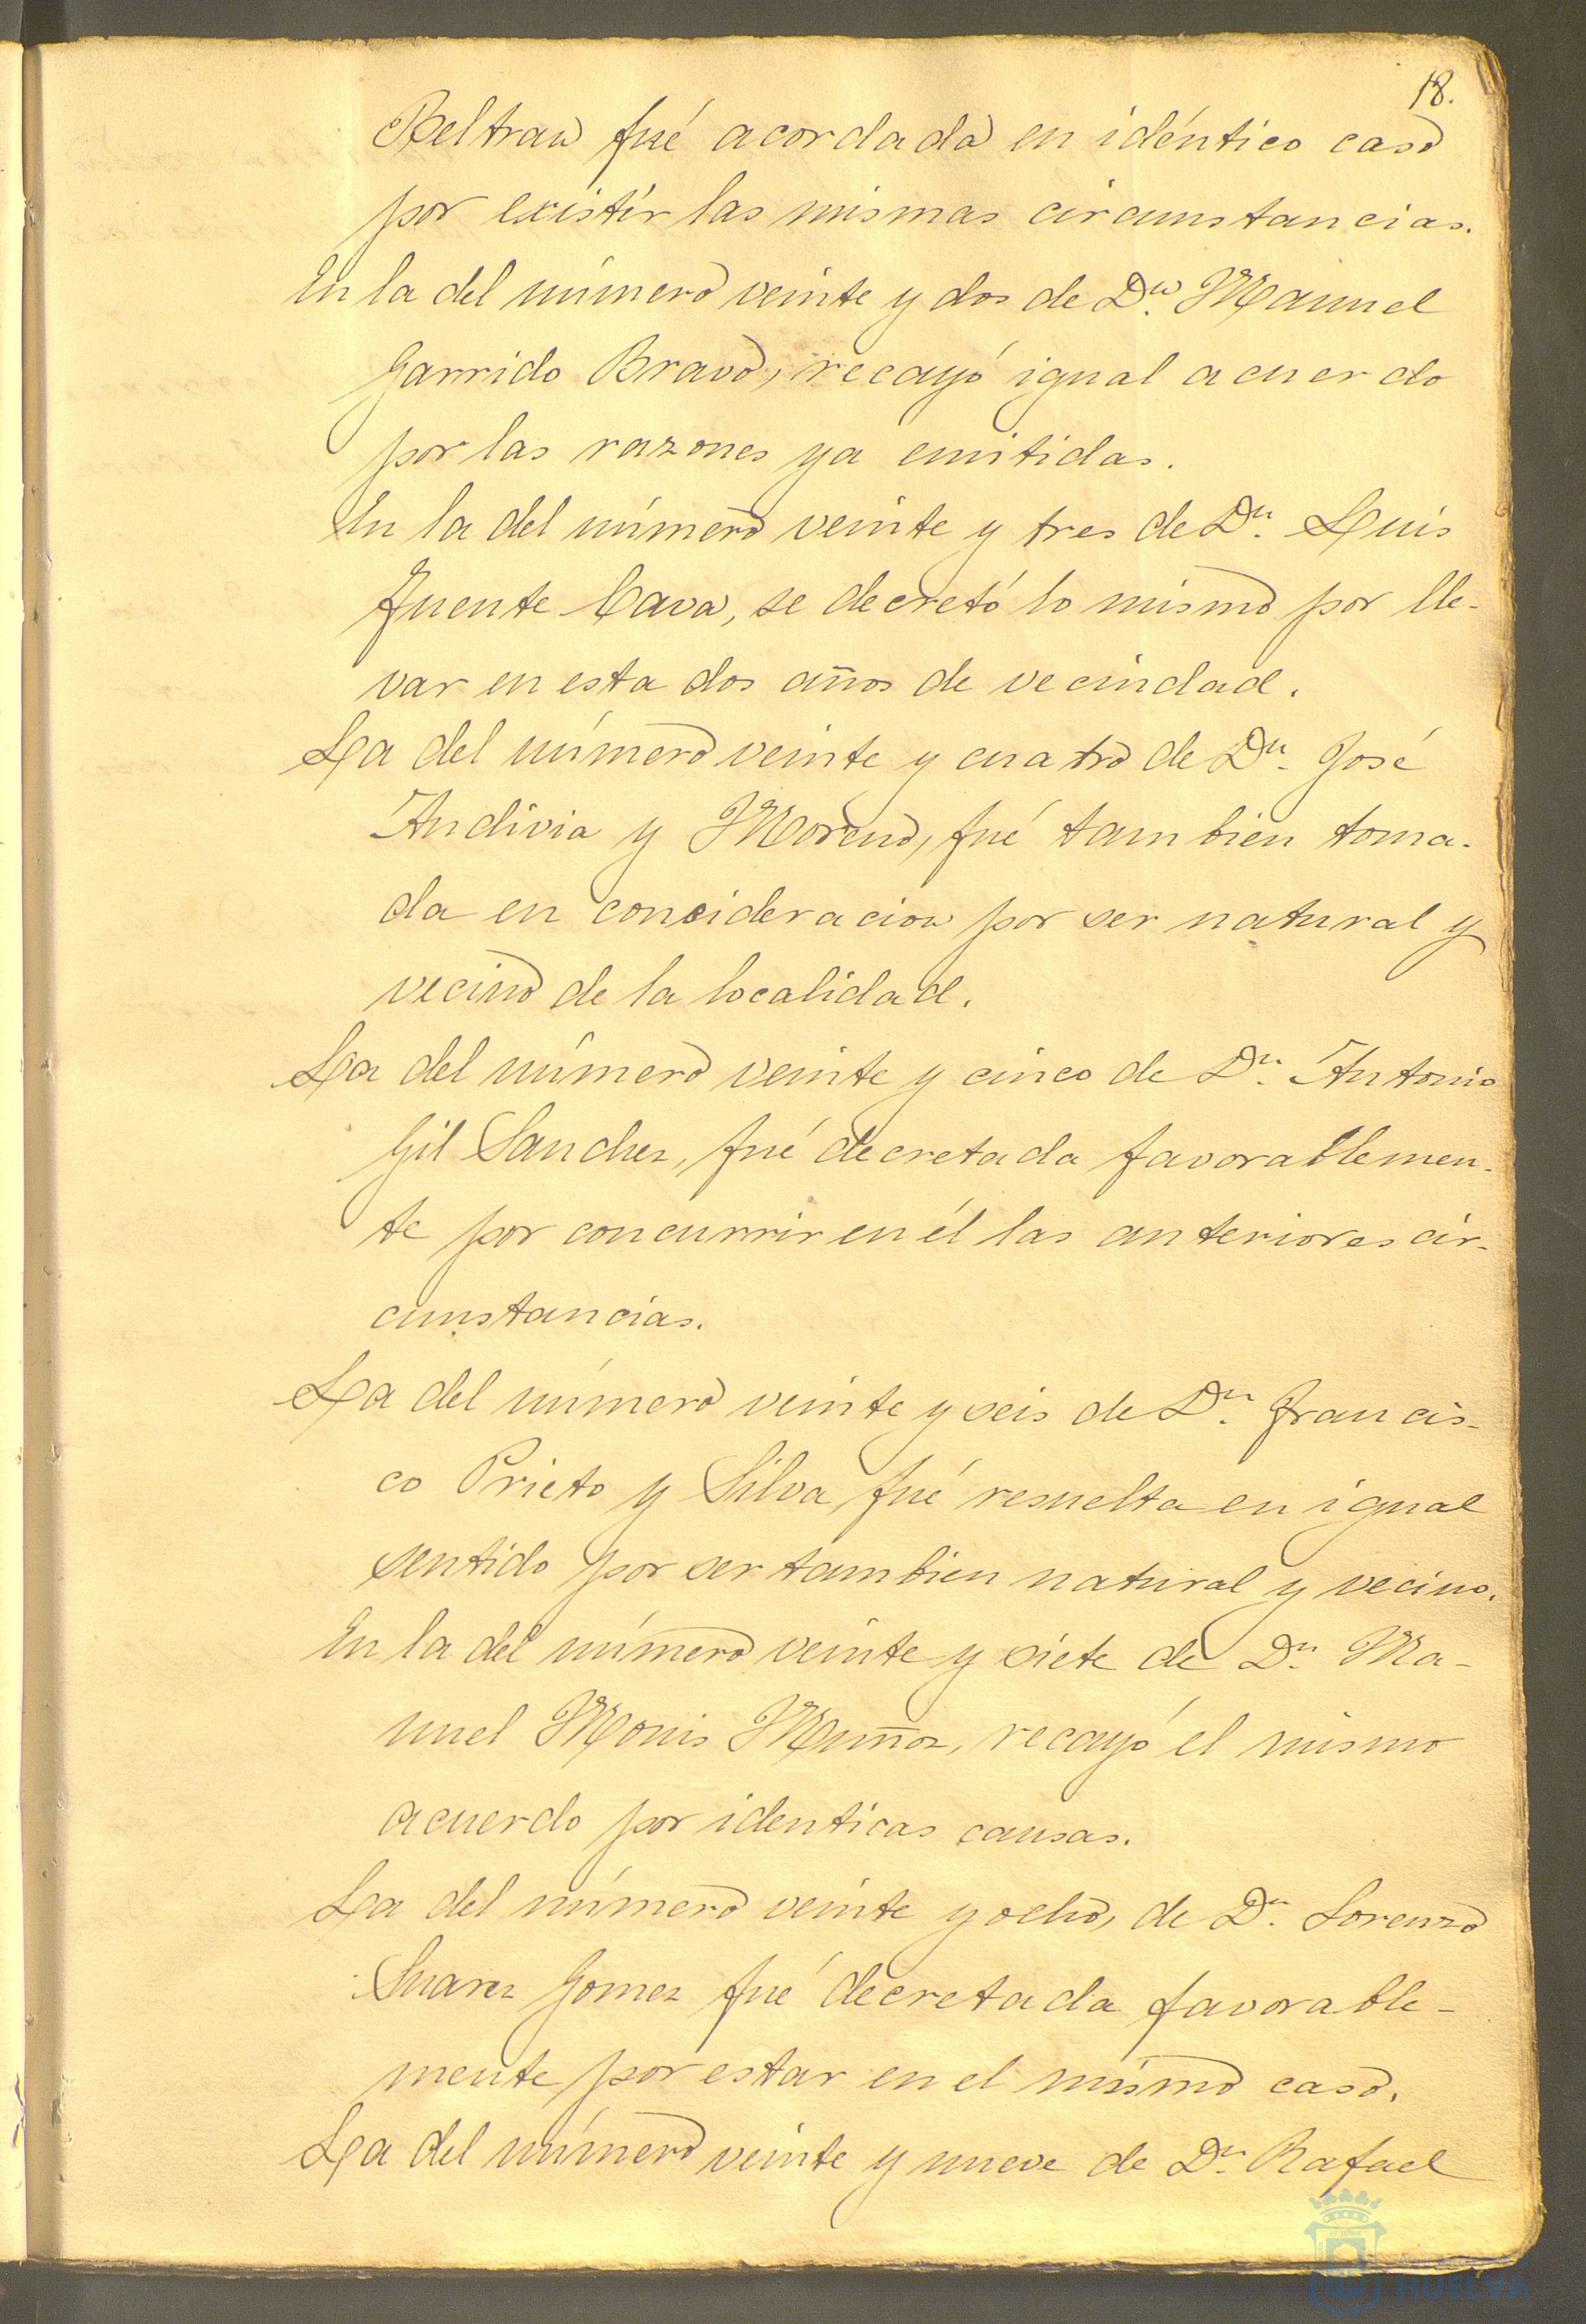 18.
Beltran fué acordada en idéntico caso
por existir las mismas circunstancias.
En la del número veinte y dos de Dn. Manuel
Garrido Bravo, recayó igual acuerdo
por las razones ya emitidas.
En la del número veinte y tres de Dn. Luis
Fuente Cava, se decretó lo mismo por lle-
var en esta dos años de vecindad.
La del número veinte y cuatro de Dn. José
Andivia y Moreno, fué tambien toma-
da en concideracion por ser natural y
vecino de la localidad.
La del número veinte y cinco de Dn. Antonio
Gil Sanchez, fué decretada favorablemen-
te por concurrir en él las anteriores cir-
cunstancias.
La del número veinte y seis de Dn. Francis-
co Prieto y Silva, fué resuelta en igual
sentido por ser tambien natural y vecino.
En la del número veinte y siete de Dn. Ma-
nuel Monis Muñoz, recayó el mismo
acuerdo por identicas causas.
La del número veinte y ocho, de Dn. Lorenzo
Suarez Gomez fué decretada favorable-
mente por estar en el mismo caso.
La del número veinte y nueve de Dn. Rafael
HUELVA